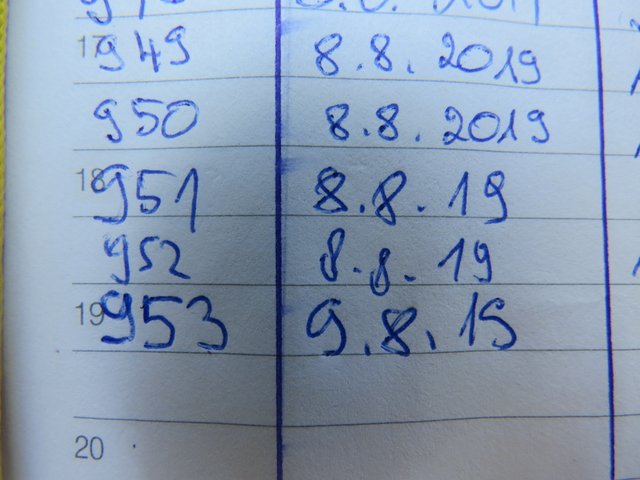 17 949 8.8. 2019
950 8.8. 2019
18 951 8.8. 19
952 8.8. 19
19 953 9.8. 19
20